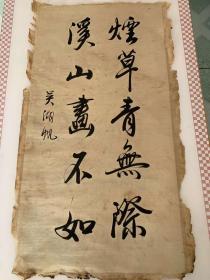 煙草青無際
溪山畫不如
吴湖帆